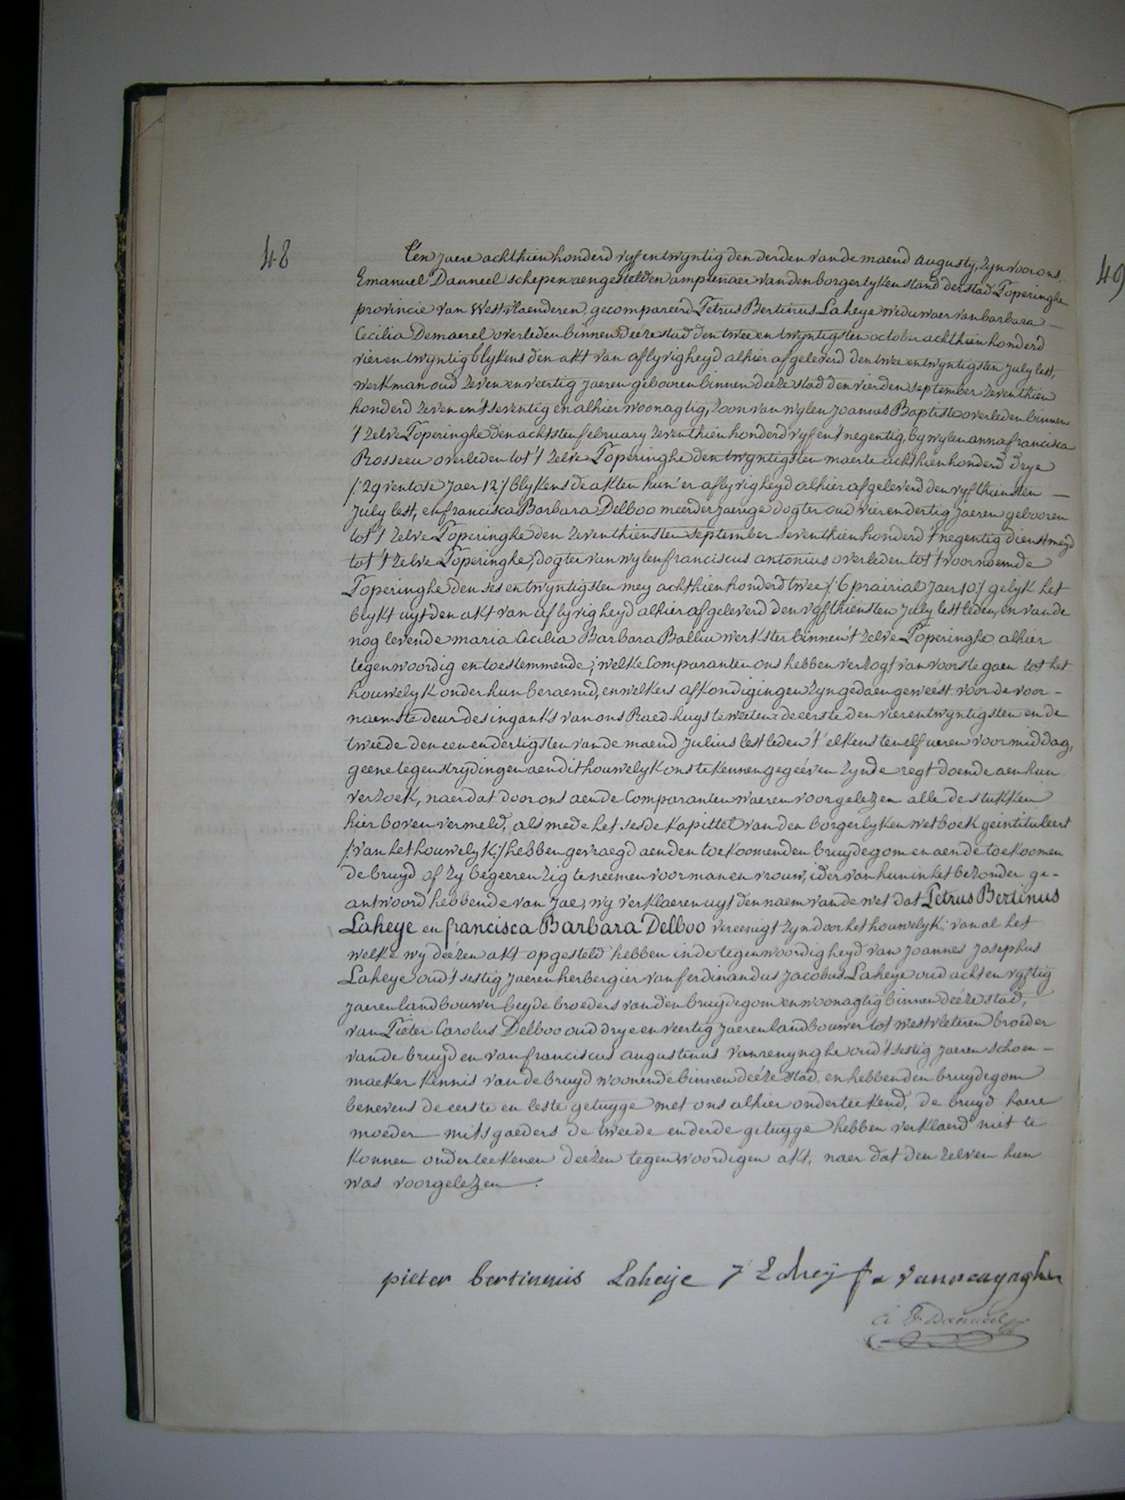 48
49
Ten jaere achthienhonderd vyf en twyntig den derden van de maend augusty, zyn voor ons
Emanuel Dauneel schepen aengestelden amptenaer van den borgerlyken stand der stad Poperinghe
provincie van Westvlaenderen, gecompareerd Petrus Bertinus Laheye weduwaer van barbara —
Cecilia Demaerel overleden binnen deeze stad den twee en twyntigsten october achthienhonderd
vier en twyntig blykens den akt van aflyvigheyd alhier afgeleverd den twee en twyntigsten july lest,
werkman oud zeven en veertig jaeren gebooren binnen deéze stad den vierden september zeventhien
honderd zeven en 't seventig en alhier woonagtig, zoon van wylen Joannes Baptiste overleden binnen
't zelve Poperinghe den achtsten february zeventhienhonderd vyf en 't negentig, by wylen anna francisca
Rosseeu overleden tot 't zelve Poperinghe den twyntigsten maerte achthienhonderd drye
/: 29 ventose Jaer 12 :/ blykens de akten hun'er aflyvigheyd alhier afgeleverd den vyfthiensten —
July lest, en francisca Barbara Delboo meerderjaerige dogter oud vier en dertig jaeren gebooren
tot 't zelve Poperinghe den zeventhiensten september seventhienhonderd 't negentig dienstmeyd
tot 't zelve Poperinghe, dogter van wylen franciscus antonius overleden tot 't voornoemde
Poperinghe den ses en twyntigsten mey achthienhonderd twee /: 6 prairial Jaer 10 :/ gelyk het
blykt uyt den akt van aflyvigheyd alhier afgeleverd den vyfthiensten July lestleden, en van de
nog levende maria Cecilia Barbara Balliu werkster binnen 't zelve Poperinghe alhier
tegenwoordig en toestemmende; welke Comparanten ons hebben verzogt van voorts te gaen tot het
houwelyk onder hun beraemd, en welkers afkondigingen zyn gedaen geweést voor de voor-
naemste deur des inganks van ons Raed-huys te weeten de eerste den vierentwyntigsten en de
tweede den eenendertigsten van de maend Julius lestleden 't elkens ten elf ueren voormiddag,
geene tegenstrydingen aen dit houwelyk ons te kennen gegeéven zynde regt doende aen hun
verzoek, naer dat door ons aen de Comparanten waeren voorgelezen alle de stukken
hier boven vermeld, als mede het sesde kapittel van den borgerlyken wetboek geintituleert
/: van het houwelyk :/ hebben gevraegd aen den toekoomenden bruydegom en aen de toekoomen
de bruyd of zy begeeren zig te neemen voor man en vrouw, ider van hun in het bezonder ge-
antwoord hebbende van Jae, wy verklaeren uyt den naem van de wet dat Petrus Bertinus
Laheye en francisca Barbara Delboo vereenigt zyn door het houwelyk; van al het
welke wy deézen akt opgesteld hebben in de tegenwoordigheyd van Joannes Josephus
Laheye oud 't sestig jaeren herbergier van ferdinandus Jacobus Laheye oud acht en vyftig
jaeren landbouwer beyde broeders van den bruydegom en woonagtig binnen deéze stad,
van Pieter Carolus Delboo oud drye en veertig jaeren landbouwer tot westvleteren broeder
van de bruyd en van franciscus augustinus vanrenynghe oud 't sestig jaeren schoen-
maeker kennis van de bruyd woonende binnen deéze stad, en hebben den bruydegom
benevens de eerste en leste getuyge met ons alhier onderteekend, de bruyd haere
moeder mitsgaeders de tweede en derde getuyge hebben verklaerd niet te
konnen onderteekenen deézen tegenwoordigen akt, naer dat den zelven hun
was voorgelezen.
pieter bertinnus Laheije J Laheÿ f a vanrenynghe